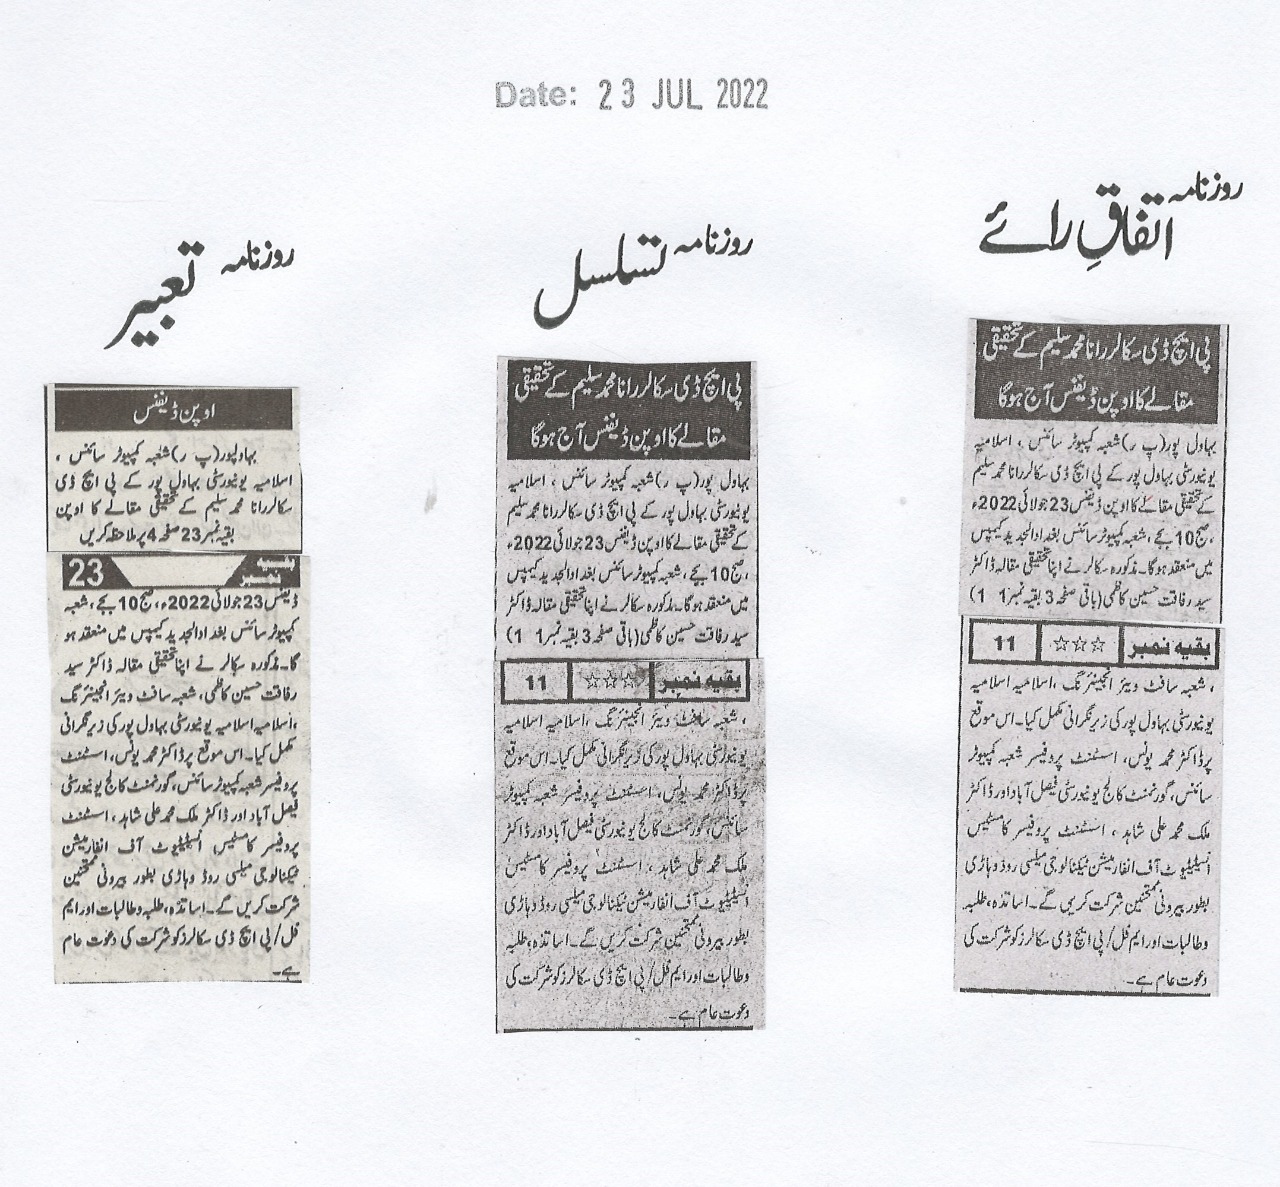 Date: 23 JUL 2022
روزنامہ اتفاقِ رائے
پی ایچ ڈی سکالر رانا محمد سلیم کے تحقیقی
مقالے کا اوپن ڈیفنس آج ہوگا
بہاول پور(پ ر)شعبہ کمپیوٹر سائنس ، اسلامیہ
یونیورسٹی بہاول پور کے پی ایچ ڈی سکالر رانا محمد سلیم
کے تحقیقی مقالے کا اوپن ڈیفنس 23 جولائی 2022ء
،صبح 10 بجے ،شعبہ کمپیوٹر سائنس بغداد الجدید کیمپس
میں منعقد ہوگا۔مذکورہ سکالر نے اپنا تحقیقی مقالہ ڈاکٹر
سید رفاقت حسین کاظمی (باقی صفحہ 3 بقیہ نمبر 1 1)
بقیہ نمبر ☆☆☆ 11
، شعبہ سافٹ ویئر انجینئرنگ ،اسلامیہ اسلامیہ
یونیورسٹی بہاول پور کی زیر نگرانی مکمل کیا۔اس موقع
پر ڈاکٹر محمد یونس، اسسٹنٹ پروفیسر شعبہ کمپیوٹر
سائنس، گورنمنٹ کالج یونیورسٹی فیصل آباد اور ڈاکٹر
ملک محمد علی شاہد ، اسسٹنٹ پروفیسر کامسیٹس
انسٹیٹیوٹ آف انفارمیشن ٹیکنالوجی میلسی روڈ وہاڑی
بطور بیرونی ممتحنین شرکت کریں گے۔اساتذہ،طلبہ
وطالبات اور ایم فل/پی ایچ ڈی سکالرز کو شرکت کی
دعوت عام ہے۔
روزنامہ تسلسل
پی ایچ ڈی سکالر رانا محمد سلیم کے تحقیقی
مقالے کا اوپن ڈیفنس آج ہوگا
بہاول پور(پ ر)شعبہ کمپیوٹر سائنس ، اسلامیہ
یونیورسٹی بہاول پور کے پی ایچ ڈی سکالر رانا محمد سلیم
کے تحقیقی مقالے کا اوپن ڈیفنس 23 جولائی 2022ء
،صبح 10 بجے ،شعبہ کمپیوٹر سائنس بغداد الجدید کیمپس
میں منعقد ہوگا۔مذکورہ سکالر نے اپنا تحقیقی مقالہ ڈاکٹر
سید رفاقت حسین کاظمی (باقی صفحہ 3 بقیہ نمبر 1 1)
بقیہ نمبر ☆☆☆ 11
، شعبہ سافٹ ویئر انجینئرنگ ،اسلامیہ اسلامیہ
یونیورسٹی بہاول پور کی زیر نگرانی مکمل کیا۔اس موقع
پر ڈاکٹر محمد یونس، اسسٹنٹ پروفیسر شعبہ کمپیوٹر
سائنس، گورنمنٹ کالج یونیورسٹی فیصل آباد اور ڈاکٹر
ملک محمد علی شاہد ، اسسٹنٹ پروفیسر کامسیٹس
انسٹیٹیوٹ آف انفارمیشن ٹیکنالوجی میلسی روڈ وہاڑی
بطور بیرونی ممتحنین شرکت کریں گے۔اساتذہ،طلبہ
وطالبات اور ایم فل/پی ایچ ڈی سکالرز کو شرکت کی
دعوت عام ہے۔
روزنامہ تعبیر
اوپن ڈیفنس
بہاولپور(پ ر)شعبہ کمپیوٹر سائنس ،
اسلامیہ یونیورسٹی بہاول پور کے پی ایچ ڈی
سکالر رانا محمد سلیم کے تحقیقی مقالے کا اوپن
بقیہ نمبر 23 صفحہ 4 پر ملاحظہ کریں
بقیہ نمبر 23
ڈیفنس 23 جولائی 2022ء،صبح 10 بجے ،شعبہ
کمپیوٹر سائنس بغداد الجدید کیمپس میں منعقد ہو
گا۔مذکورہ سکالر نے اپنا تحقیقی مقالہ ڈاکٹر سید
رفاقت حسین کاظمی، شعبہ سافٹ ویئر انجینئرنگ
،اسلامیہ اسلامیہ یونیورسٹی بہاول پور کی زیر نگرانی
مکمل کیا۔اس موقع پر ڈاکٹر محمد یونس، اسسٹنٹ
پروفیسر شعبہ کمپیوٹر سائنس، گورنمنٹ کالج یونیورسٹی
فیصل آباد اور ڈاکٹر ملک محمد علی شاہد ، اسسٹنٹ
پروفیسر کامسیٹس انسٹیٹیوٹ آف انفارمیشن
ٹیکنالوجی میلسی روڈ وہاڑی بطور بیرونی ممتحنین
شرکت کریں گے۔اساتذہ،طلبہ وطالبات اور ایم
فل/پی ایچ ڈی سکالرز کو شرکت کی دعوت عام
ہے۔